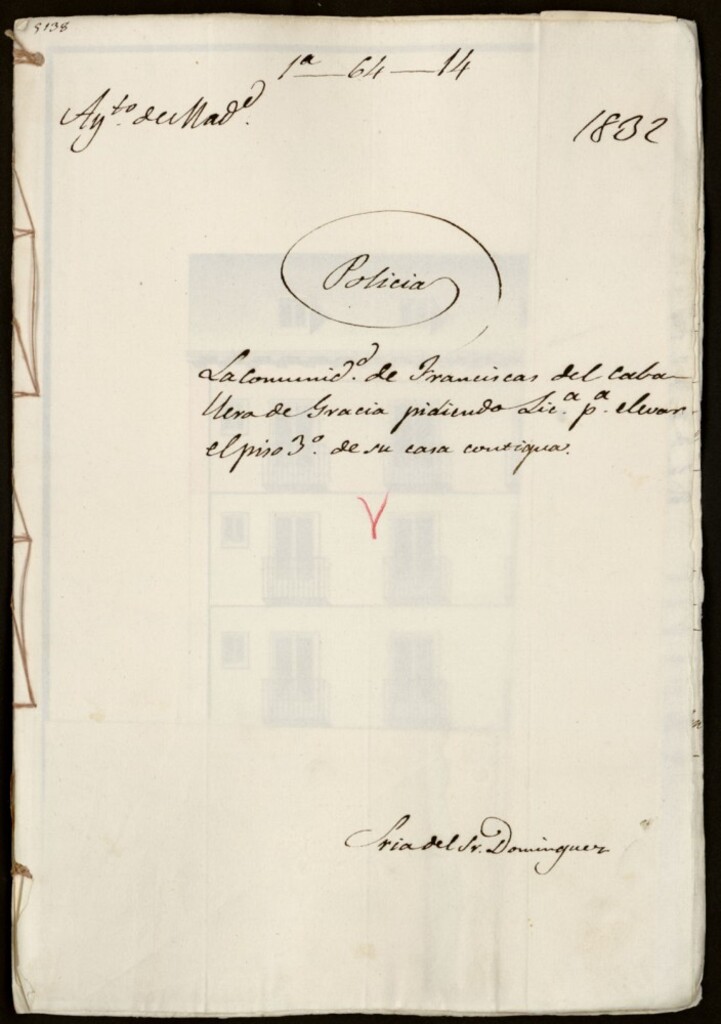 5138
1ª—64—14
Ayto. de Madd.
1832
Policia
La comunidd. de Franciscas del caba-
llero de Gracia pidiendo Lica. pa. elevar
el piso 3º. de su casa contigua.
Sria del Sr. Dominguez